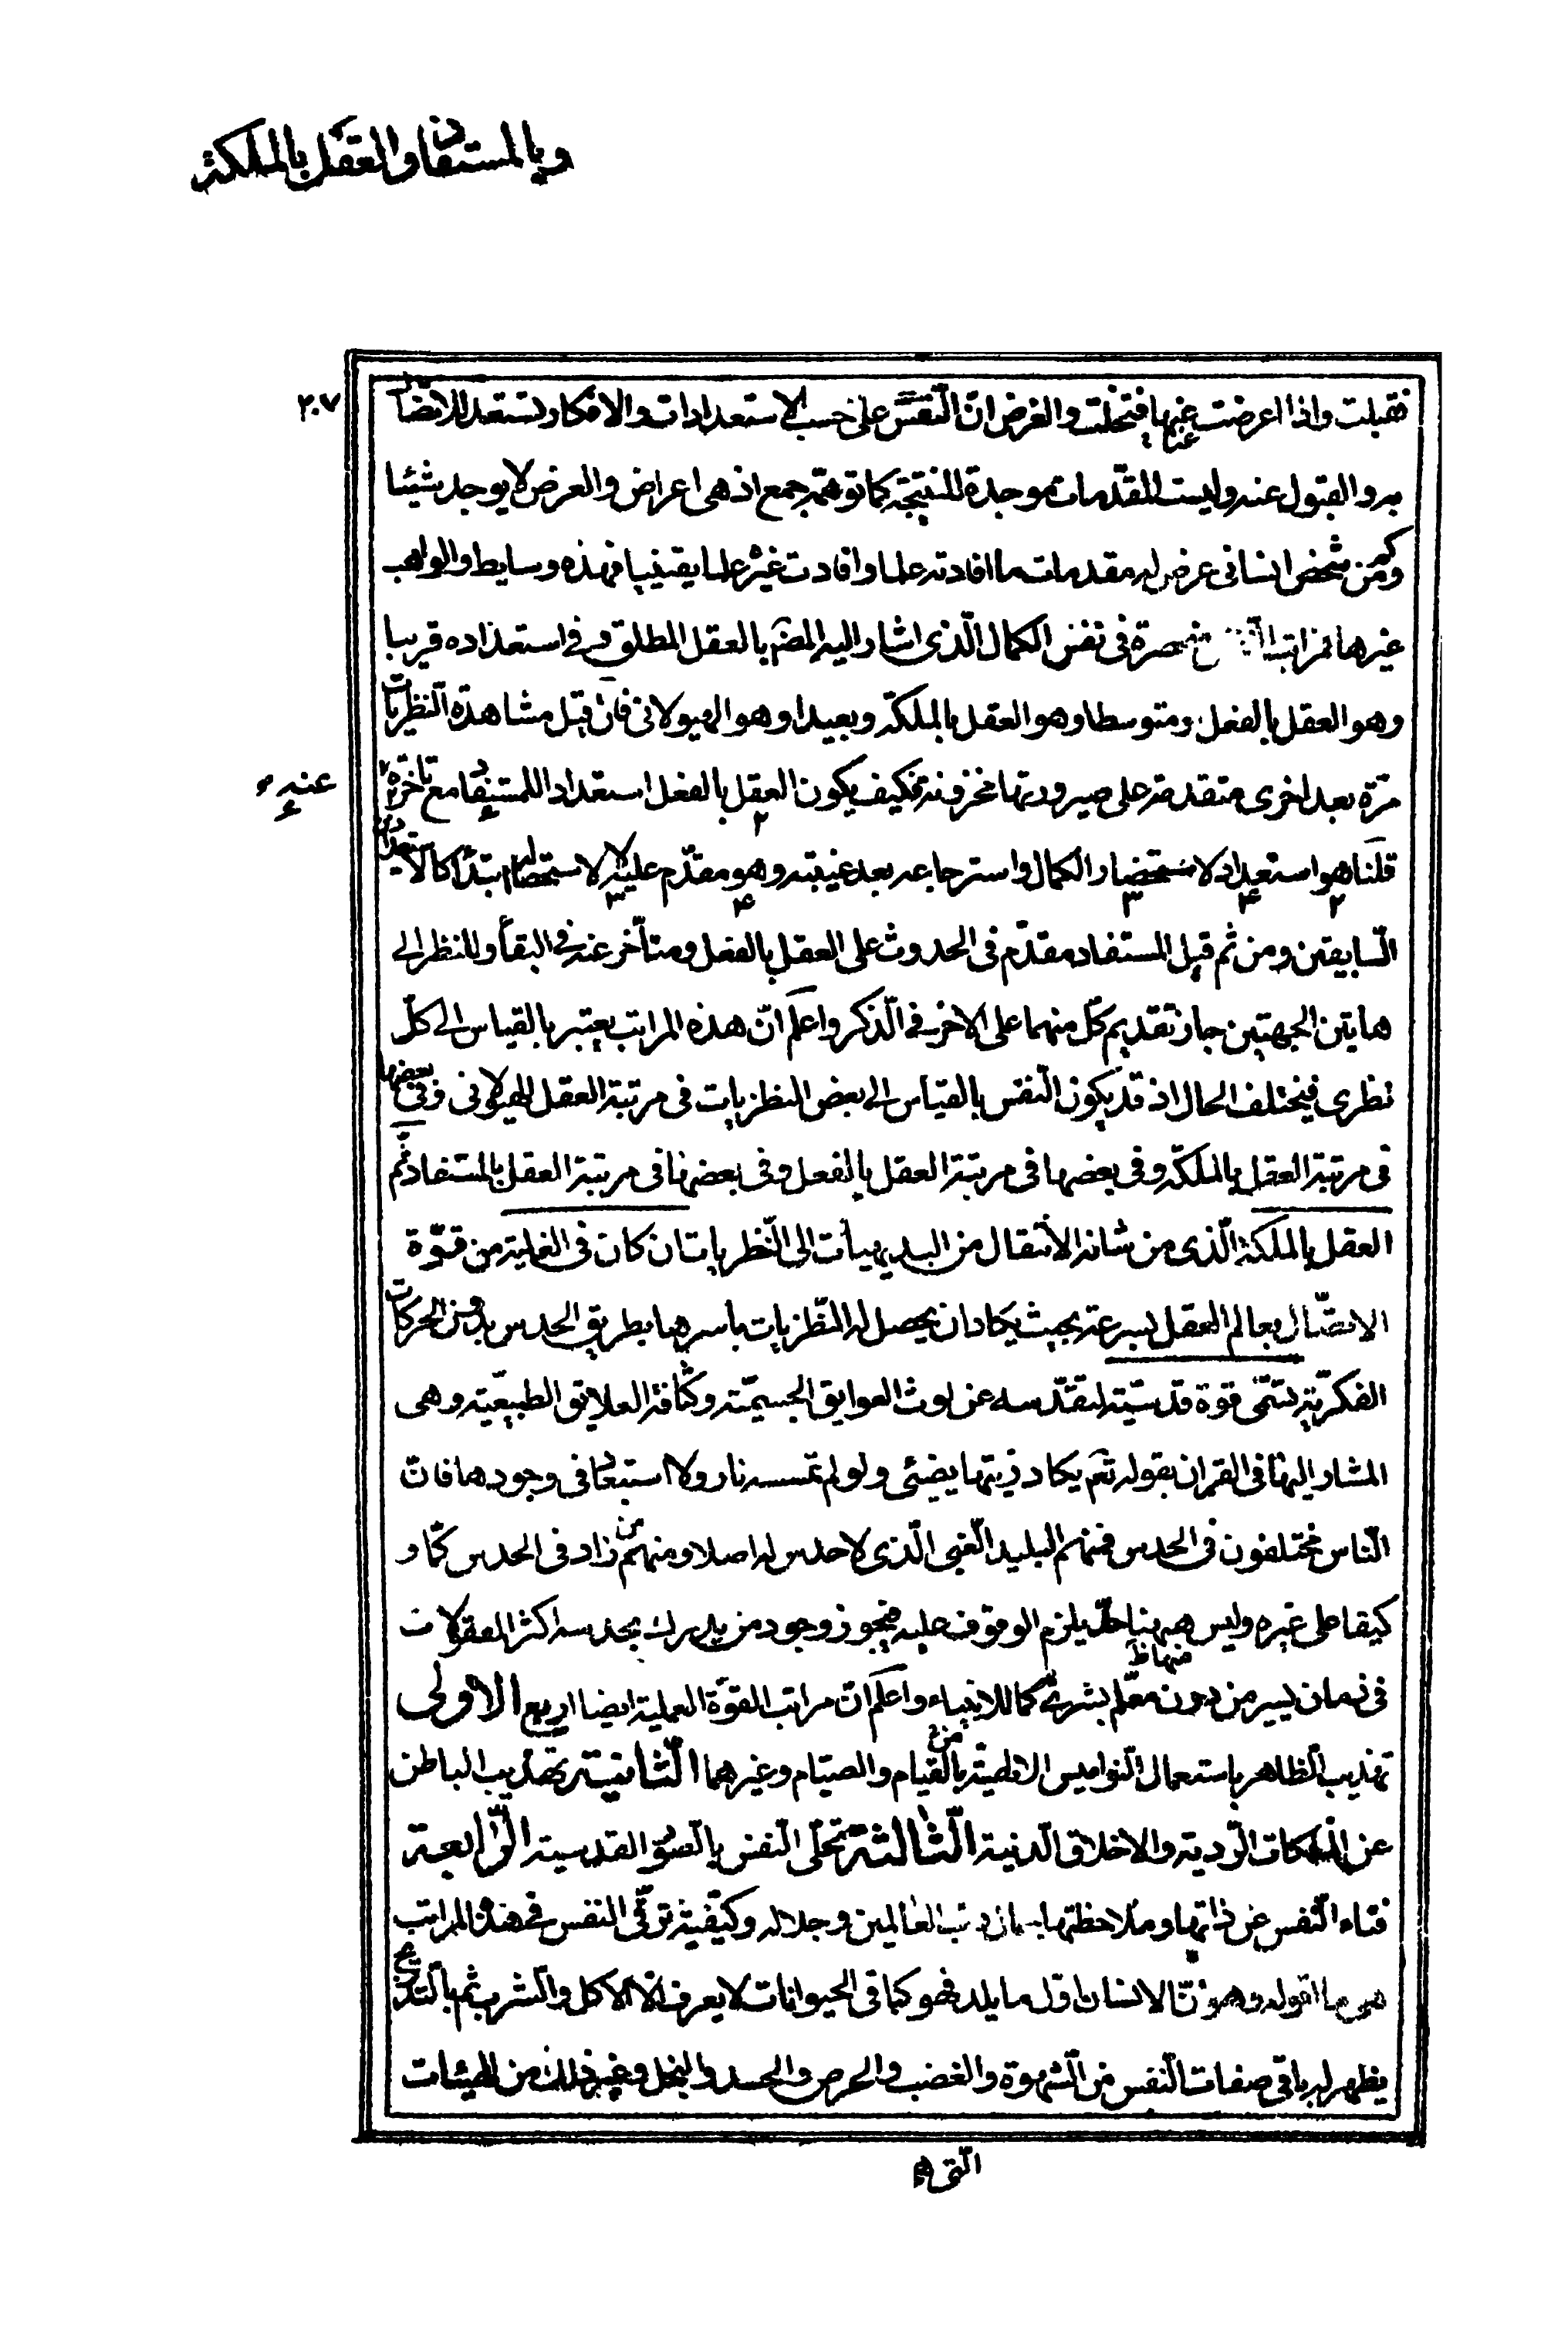 وبالمستفاد والعقل بالملكة
٢٠٧
فقبلت واذا اعرضت عنها فتخلت والغرض ان النفس على حسب الاستعدادات والافكار تستعد للاتصال
به والقبول عنه وليست المقدمات موجدة للنتيجة كما توهمه جمع اذ هى اعراض والعرض لا يوجد شيئا
وكم من شخص انسانى عرض له مقدمات ما افادته علما وافادت غيره علما يقينيا فهذه وسايط والواهب
غيرها فمراتب منحصرة فى نفس الكمال الذى اشار اليه المصـ بالعقل المطلق وفى استعداده قريبا
وهو العقل بالفعل ومتوسطا وهو العقل بالملكة وبعيدا وهو الهيولانى فان قيل مشاهدة النظريات
مرة بعد اخرى متقدمة على صيرورتها مخزونة فكيف يكون العقل بالفعل استعدادا للمستفاد مع تاخره
عنه
قلنا هو استعداد لاستحضار الكمال واسترجاعه بعد غيبته وهو مقدم عليه لا لاستحصاله ابتداء كالاستعدادين
السابقين ومن ثم قيل المستفاد مقدم فى الحدوث على العقل بالفعل ومتأخر عنه فى البقاء وللنظر الى
هاتين الجهتين جاز تقديم كل منهما على الاخر فى الذكر واعلم ان هذه المراتب يعتبر بالقياس الى كل
نظرى فيختلف الحال اذ قد يكون النفس بالقياس الى بعض النظريات فى مرتبة العقل الهيولانى وفى بعضها
فى مرتبة العقل بالملكة وفى بعضها فى مرتبة العقل بالفعل وفى بعضها فى مرتبة العقل بالمستفاد ثم
العقل بالملكة الذى من شانه الانتقال من البديهيات الى النظريات ان كان فى الغاية من قوة
الاتصال بعالم العقل بسرعة بحيث يكاد ان يحصل له النظريات باسرها بطريق الحدس بدون الحركات
الفكرية يسمى قوة قدسية لتقدسه عن لوث العوايق الجسمية وكثافة العلايق الطبيعية وهى
المشار اليها فى القران بقوله تعم يكاد زيتها يضيئى ولو لم تمسسه نار ولا استبعاد فى وجودها فان
الناس مختلفون فى الحدس فمنهم البليد الغبى الذى لا حدس له اصلا ومنهم من زاد فى الحدس كما و
كيفا على غيره وليس هيهنا حد يلزم الوقوف عليه فيجوز وجود من يدرك بحدسه اكثر المعقولات
فى زمان يسير من دون معلم بشرى كما للانبياء واعلم ان مراتب القوة العملية ايضا اربع الاولى
تهذيب الظاهر باستعمال النواميس الالهية من القيام والصيام وغيرهما الثانية تهذيب الباطن
عن الملكات الردية والاخلاق الدنية الثالثة تحلى النفس بالصور القدسية الرابعة
فناء النفس عن ذاتها وملاحظتها رب العالمين وجلاله وكيفية ترقى النفس فى هذه المراتب
هى ما اقوله وهو ان الانسان اول ما يلد فهو كباقى الحيوانات لا يعرف الا الاكل والشرب ثم بالتدريج
يظهر له باقى صفات النفس من الشهوة والغضب والحرص والحسد والبخل وغير ذلك من الهيئات
التى